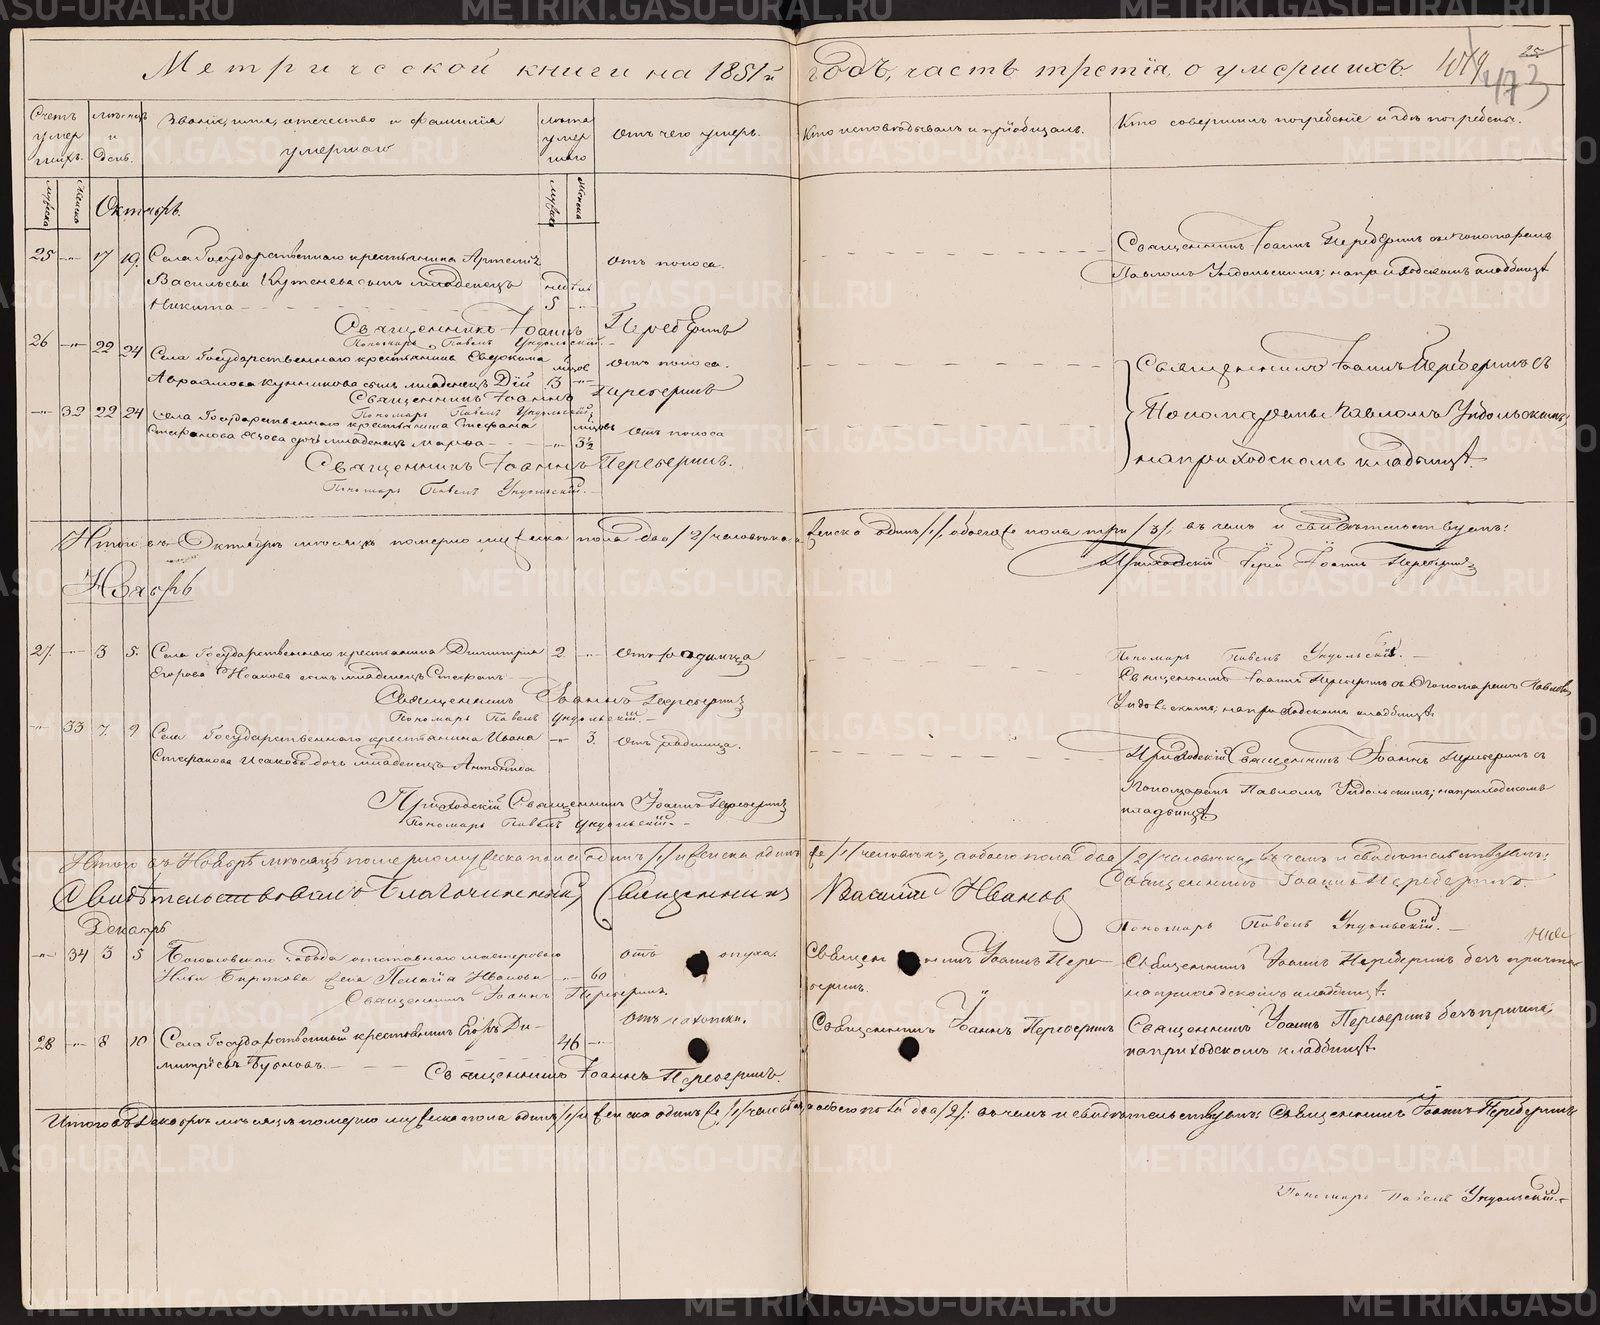 Метрической книги на 1851й годъ, часть третія, о умершихъ.
25
473
Счетъ умершихъ.
Мѣсяцъ и день.
Званіе, имя, отечество и фамилія умершаго
Лѣта умершаго
Отъ чего умеръ.
Кто исповѣдывалъ и пріобщалъ.
Кто совершилъ погребеніе и гдѣ погребены.
мужеска
женска
Октябрь.
мужеска
женска
25 -"- 17 19. Села Государственнаго крестьянина Артемія
Васильева сынъ младенецъ
Никита
недѣль
5
отъ поноса.
Священникъ Іоаннъ Переберинъ съ пономаремъ
Павломъ Ундольскимъ; на приходскомъ кладбищѣ
Священникъ Іоаннъ Переберинъ
Пономарь Павелъ Ундольскій.
26 -"- 22 24 Села Государственнаго крестьянина Евдокима
Авраамова сынъ младенецъ Дій
отъ поноса.
Священникъ Іоаннъ Переберинъ
Пономарь Павелъ Ундольскій.
-"- 32 22 24 Села Государственнаго крестьянина Стефана
Стефанова дочь младенецъ Марѳа -"- 3½
отъ поноса
Священникъ Іоаннъ Переберинъ съ
Пономаремъ Павломъ Ундольскимъ;
на приходскомъ кладбищѣ.
Священникъ Іоаннъ Переберинъ.
Пономарь Павелъ Ундольскій.
Итого въ Октябрѣ мѣсяцѣ померло мужеска пола два /2/ человѣка, женска одинъ /1/, обоего пола три /3/; въ чемъ и свидѣтельствуемъ:
Приходскій Іерей Іоаннъ Переберинъ
Ноябрь
Пономарь Павелъ Ундольскій.
27. -"- 3 5. Села Государственнаго крестьянина Димитрія 2 -"- отъ родимца
Егорова сынъ младенецъ Стефанъ
Священникъ Іоаннъ Переберинъ съ Пономаремъ Павломъ
Ундольскимъ; на приходскомъ кладбищѣ.
Священникъ Іоаннъ Переберинъ
Пономарь Павелъ Ундольскій.
-"- 33 7. 9 Села Государственнаго крестьянина Ивана -"- 3. отъ родимца.
Стефанова Исакова дочь младенецъ Антонина
Приходскій Священникъ Іоаннъ Переберинъ съ
Пономаремъ Павломъ Ундольскимъ; на приходскомъ
кладбищѣ.
Приходскій Священникъ Іоаннъ Переберинъ
Пономарь Павелъ Ундольскій.
Итого въ Ноябрѣ мѣсяцѣ померло мужеска пола одинъ /1/ и женска одинъ же /1/ человѣкъ, а обоего пола два /2/ человѣка, въ чемъ и свидѣтельствуемъ:
Священникъ Іоаннъ Переберинъ.
Свидѣтельствовалъ Благочинный, Священникъ Василій Ивановъ
Пономарь Павелъ Ундольскій.
Декабрь
-"- 34 3 5 Богословскаго завода отставнаго мастероваго
жена Пелагія Иванова -"- 60
отъ опуха.
Священникъ Іоаннъ Переберинъ.
Священникъ Іоаннъ Переберинъ безъ причта
на приходскомъ кладбищѣ.
Священникъ Іоаннъ Переберинъ.
28 -"- 8 10 Села Государственный крестьянинъ Егоръ Димитріевъ 46 -"-
отъ чахотки.
Священникъ Іоаннъ Переберинъ
Священникъ Іоаннъ Переберинъ безъ причта,
на приходскомъ кладбищѣ.
Священникъ Іоаннъ Переберинъ.
Итого въ Декабрѣ мѣсяцѣ померло мужеска пола одинъ /1/ и женска одинъ же /1/ человѣкъ, а обоего пола два /2/; въ чемъ и свидѣтельствуемъ: Священникъ Іоаннъ Переберинъ
Пономарь Павелъ Ундольскій.
METRIKI.GASO-URAL.RU